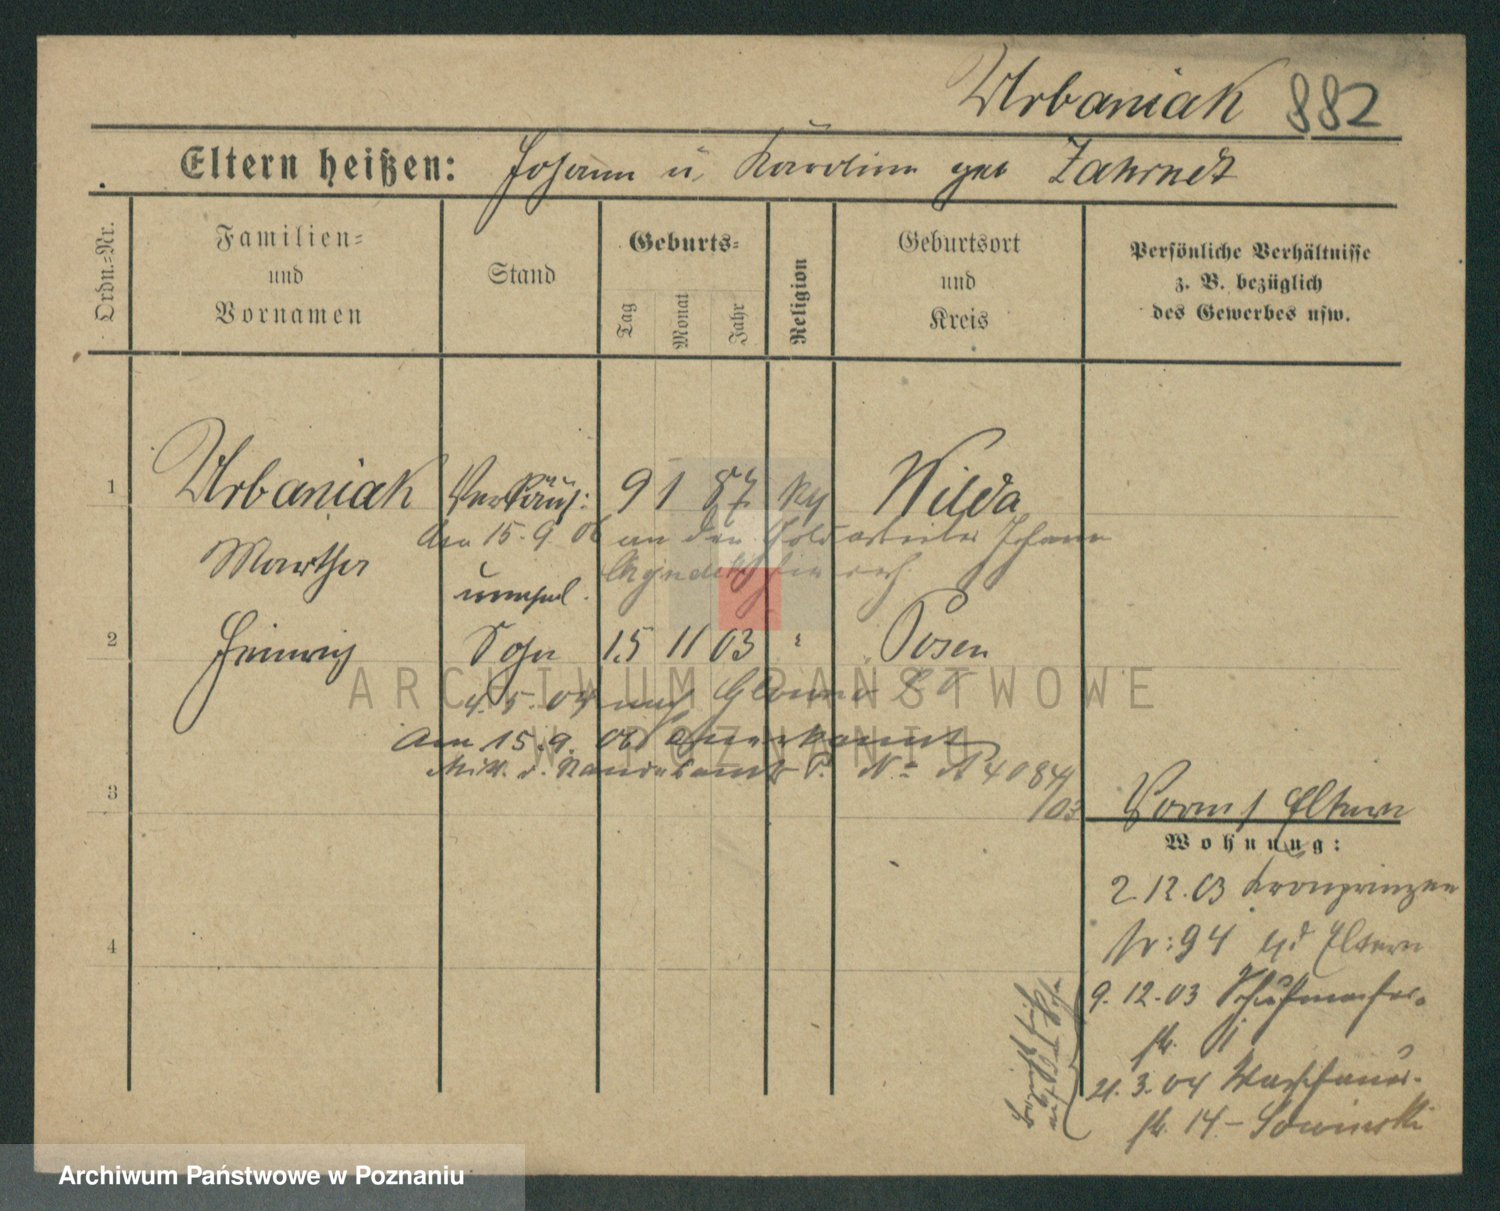 Urbaniak 882
Eltern heißen: Johann u. Karoline geb Zahrndt
Ordn.=Nr.
Familien=
und
Vornamen
Stand
Geburts=
Tag
Monat
Jahr
Religion
Geburtsort
und
Kreis
Persönliche Verhältnisse
z. B. bezüglich
des Gewerbes usw.
1 Urbaniak Verkäuf: 9 1 87 Wilda
Am 15.9 06 an den Johann
Martha
unehel.
2 Heinrich Sohn 15 11 03 " Posen
4.5.04 nach Glowno
Am 15.9. 06 anerkannt
Mitt. d. Standesamts P. No A 4084
/03
3
Vorm / Eltern
Wohnung:
2.12.03 Kronprinzen
str: 94 bei d Eltern
4
9.12.03 Schuhmacher-
str. 11
21.3.04 Warschauer-
str. 14 –
ARCHIWUM PAŃSTWOWE
W POZNANIU
Archiwum Państwowe w Poznaniu